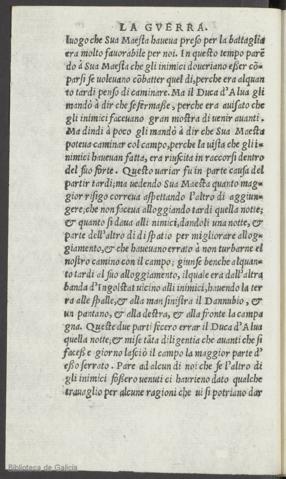 LA GVERRA.
luogo che Sua Maesta haueua preso per la battaglia
era molto fauorabile per noi. In questo tempo parẽ
do à Sua Maesta che gli inimici doueriano eßer cõ
parsi se uoleuano cõbatter quel di, perche era alquan
to tardi penso di caminare. Ma il Duca d'Alua gli
mandò à dir che se fermaße, perche era auisato che
gli inimici faceuano gran mostra di uenir auanti.
Ma dindi à poco gli mandò à dir che Sua Maesta
poteua caminar col campo, perche la uista che gli i-
nimici haueuan fatta, era riuscita in raccorsi dentro
del suo forte. Questo uariar fu in parte causa del
partir tardi; ma uedendo Sua Maesta quanto mag=
gior risigo correua aspettando l'altro di aggiun=
gere, che non faceua alloggiando tardi quella notte;
& quanto si daua alli nimici, dandoli una notte, &
parte dell'altro di di spatio per migliorare allog=
giamento, & che haueuano errato à non turbarne el
nostro camino con il campo; giunse benche alquan=
to tardi al suo alloggiamento, ilquale era dall'altra
banda d'Ingolstat uicino alli inimici, hauendo la ter
ra alle spalle, & alla man sinistra il Dannubio, &
un pantano, & alla destra, & alla fronte la campa
gna. Queste due parti fecero errar il Duca d'Alua
quella notte, & mise tãta diligentia che auanti che si
faceße giorno lasciò il campo la maggior parte d'
eßo serrato. Pare ad alcun di noi che se l'altro di
gli inimici foßero uenuti ci haurieno dato qualche
trauaglio per alcune ragioni che ui si potriano dar
Biblioteca de Galicia